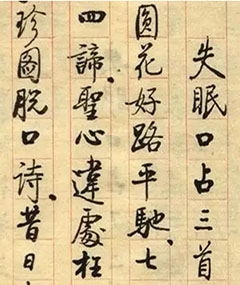 失眠口占三首
圆花好路平驰、七
四諦、聖心違處枉
珍圖脱口詩、昔日